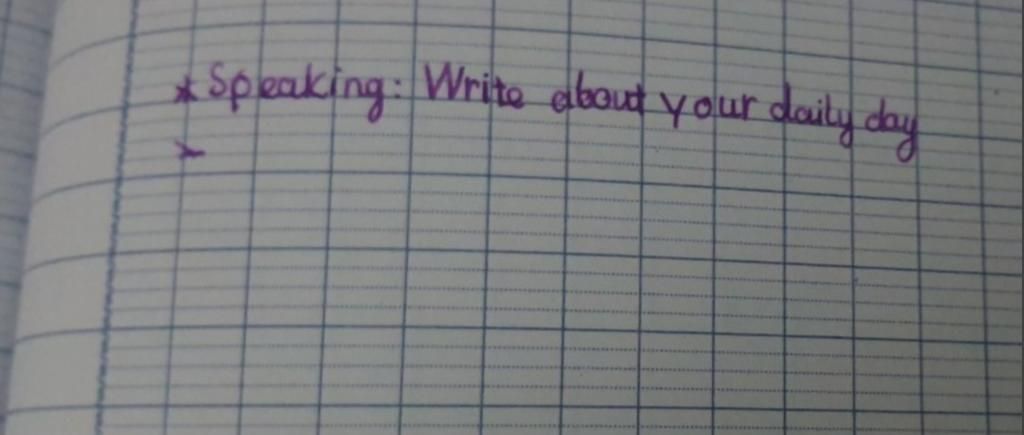 * Speaking: Write about your daily day
>